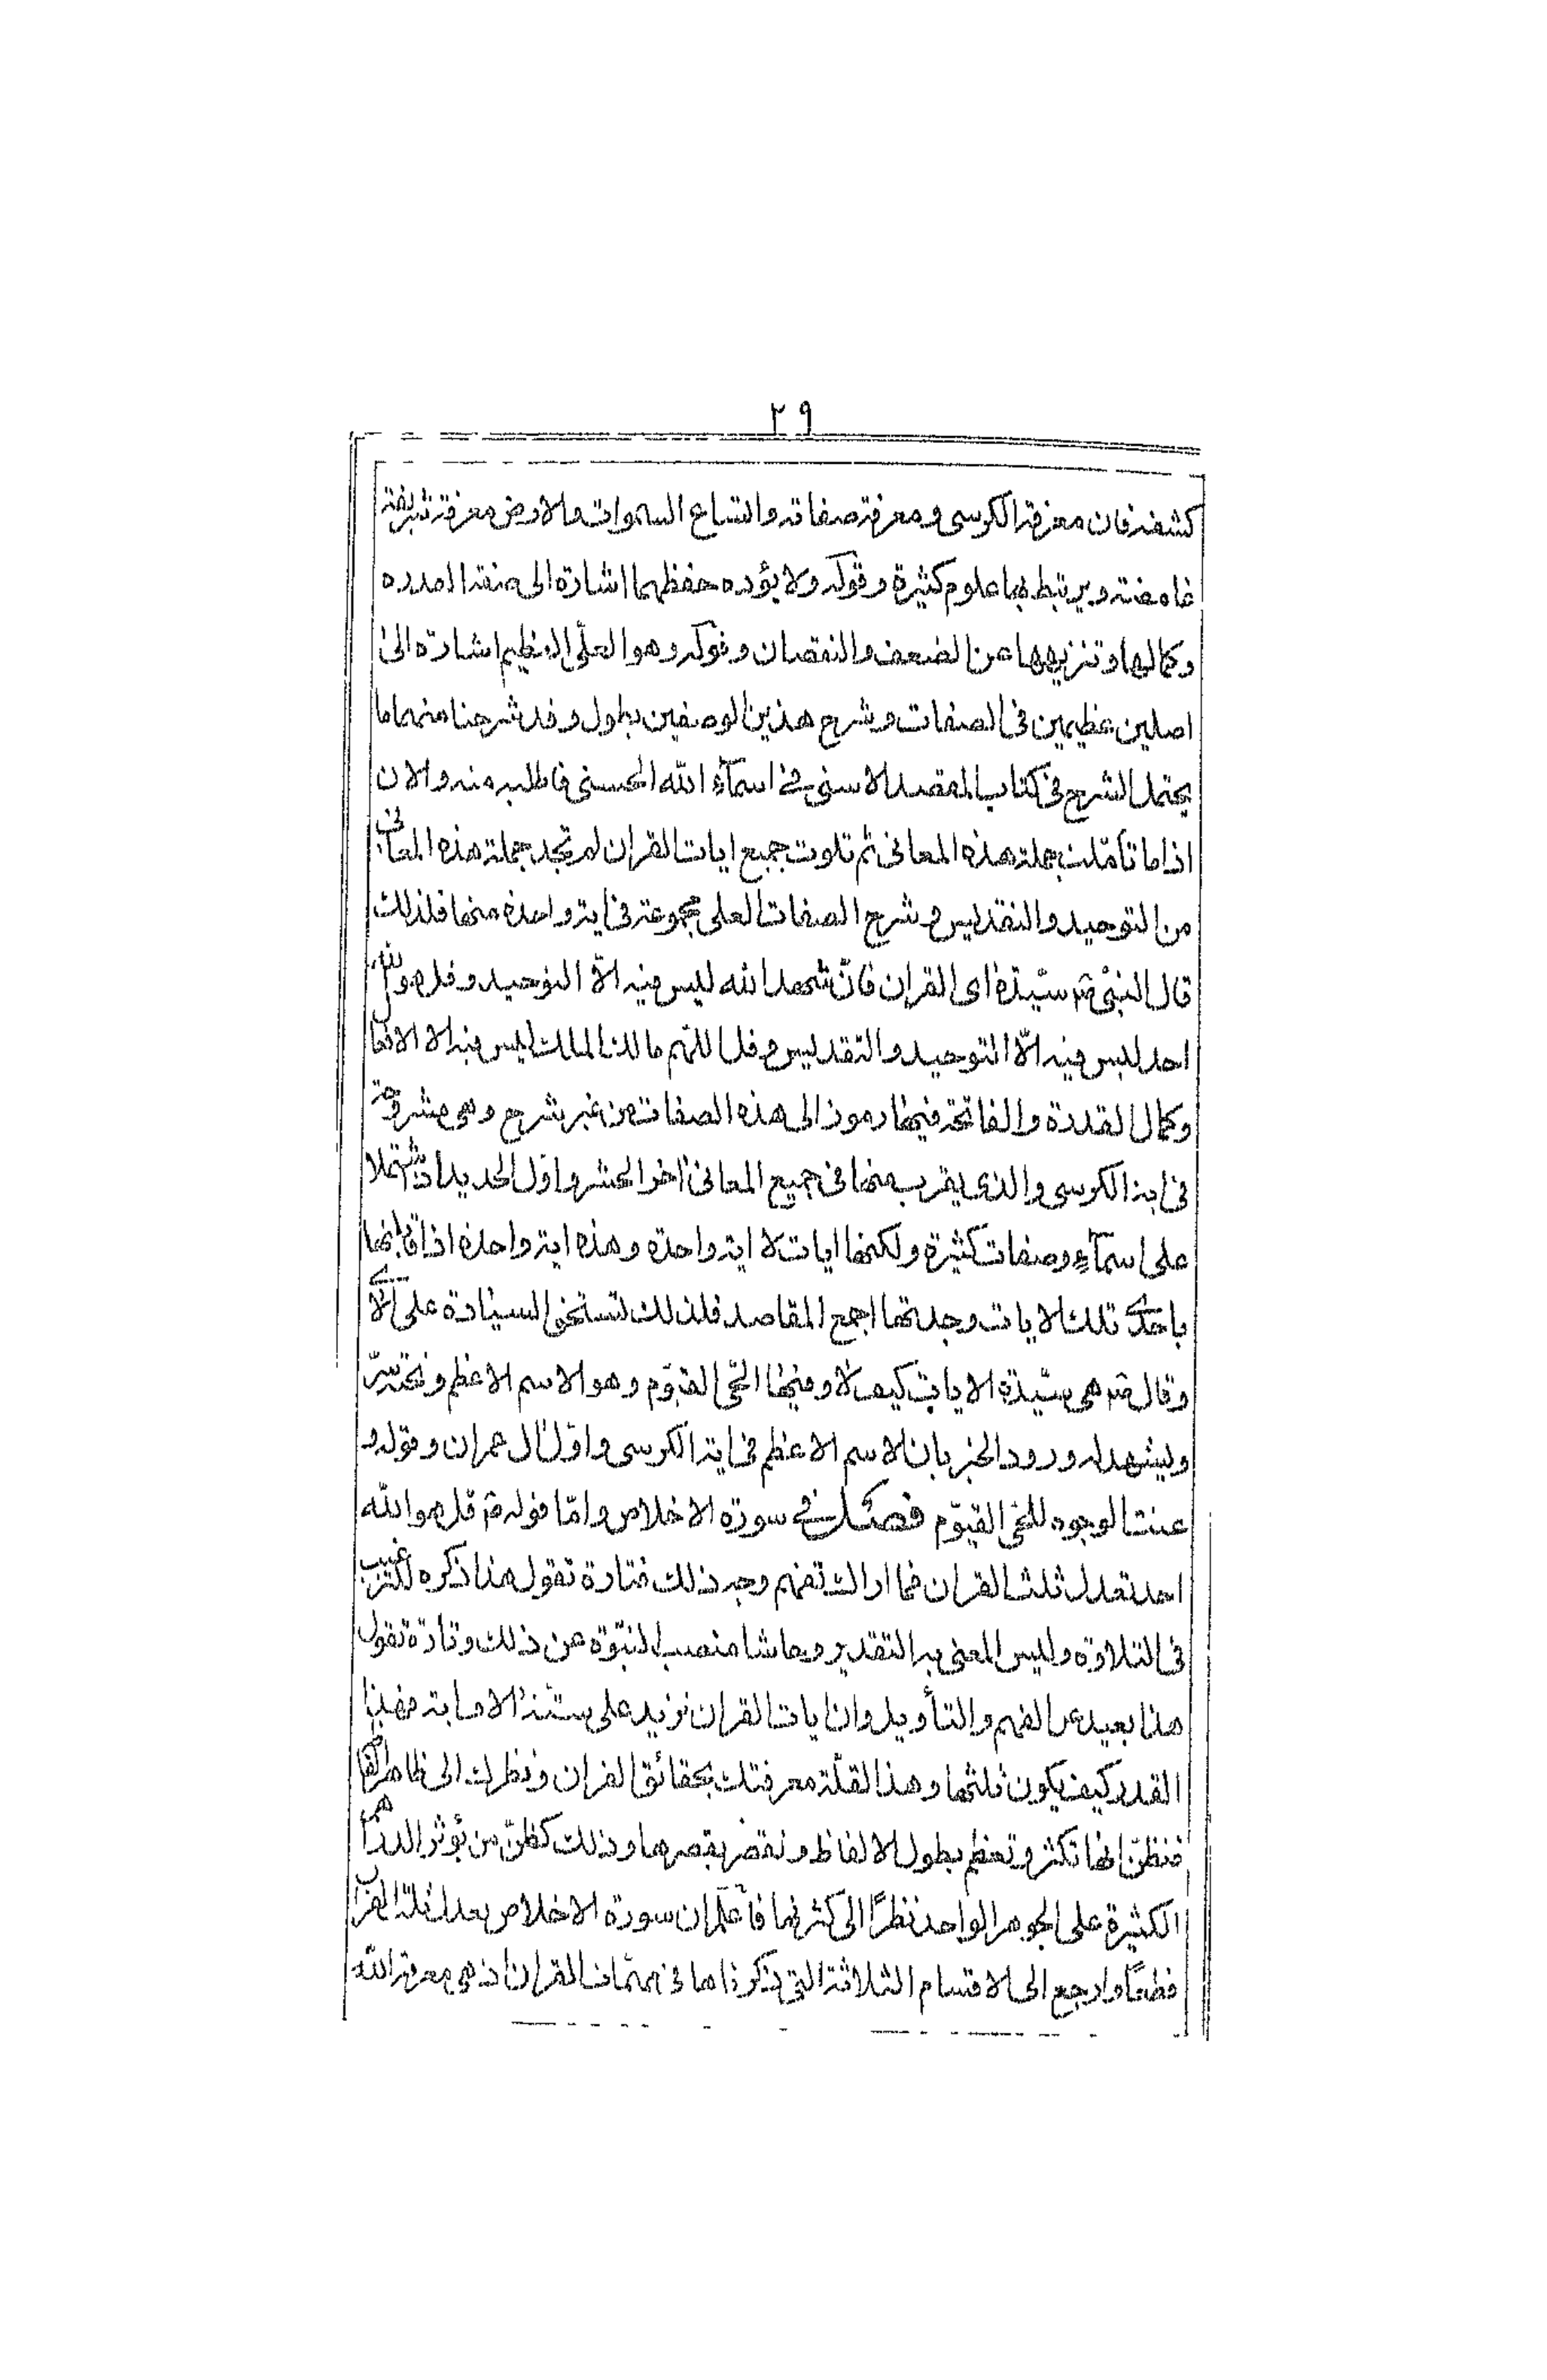 ٢٩
كشفه فان معرفة الكرسى ومعرفة صفاته واتساع السموات والارض معرفة شريفة
غامضة ويرتبط بها علوم كثيرة وقوله ولا يؤده حفظهما اشارة الى صفة القدرة
وكمالها وتنزيهها عن الضعف والنقصان وقوله وهو العلىّ العظيم اشارة الى
اصلين عظيمين فى الصفات وشرح هذين الوصفين يطول وقد شرحنا منهما ما
يحتمل الشرح فى كتاب المقصد الاسنى فى اسمآء الله الحسنى فاطلبه منه والان
اذا ما تأملت جملة هذه المعانى ثم تلوت جميع ايات القران لم تجد جملة هذه المعانى
من التوحيد والتقديس وشرح الصفات العلى مجموعة فى اية واحدة منها فلذلك
قال النبىّ ص سيّدة اى القران فانّ شهد الله ليس فيه الاّ التوحيد وقل هو الله
احد ليس فيه الاّ التوحيد والتقديس وقل اللهم مالك الملك ليس فيه الا الافعال
وكمال القدرة والفاتحة فيها رموز الى هذه الصفات من غير شرح وهى مشروحة
فى اية الكرسى والذى يقرب منها فى جميع المعانى اخر الحشر واوّل الحديد اذ تشتملا
على اسمآء وصفات كثيرة ولكنها ايات لا اية واحدة وهذه اية واحدة اذا قابلتها
باحدى تلك الايات وجدتها اجمع المقاصد فلذلك تستحق السيادة على الاى
وقال ص هى سيّدة الايات كيف لا وفيها الحىّ القيّوم وهو الاسم الاعظم وتحته سرّ
ويشهد له ورود الخبر بان الاسم الاعظم فى اية الكرسى واوّل ال عمران وقوله و
عنت الوجوه للحىّ القيّوم فصل فى سورة الاخلاص وامّا قوله ص قل هو الله
احد تعدل ثلث القران فما اراك تفهم وجه ذلك فتارة تقول هذا ذكره للترغيب
فى التلاوة وليس المعنى به التقدير وحاشا منصب النبّوة عن ذلك وتارة تقول
هذا بعيد عن الفهم والتأويل وان ايات القران تزيد على ستة الاف اية فهذا
القدر كيف يكون ثلثها وهذا لقلّة معرفتك بحقائق القران ونظرك الى ظاهر الفا
فتظنّ انها تكثر وتعظم بطول الالفاظ وتقصر بقصرها وذلك كظنّ من يؤثر الدراهم
الكثيرة على الجوهر الواحد نظرًا الى كثرتها فاعلم ان سورة الاخلاص تعدل ثلث القران
قطعًا وارجع الى الاقسام الثلاثة التى ذكرناها فى مهمّات القران اذ هى معرفة الله